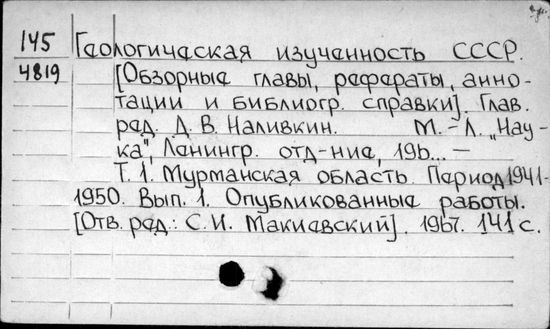 145 Геологическая изученность СССР.
4819 [Обзорные главы, рефераты, анно-
тации и библиогр. справки]. Глав.
ред. Д. В. Наливкин. М.-Л. „Нау-
ка", Ленингр. отд-ние, 196...—
Т. 1. Мурманская область. Период 1941-
1950. Вып. 1. Опубликованные работы.
[Отв. ред.: С. И. Макиевский]. 1967. 141 с.